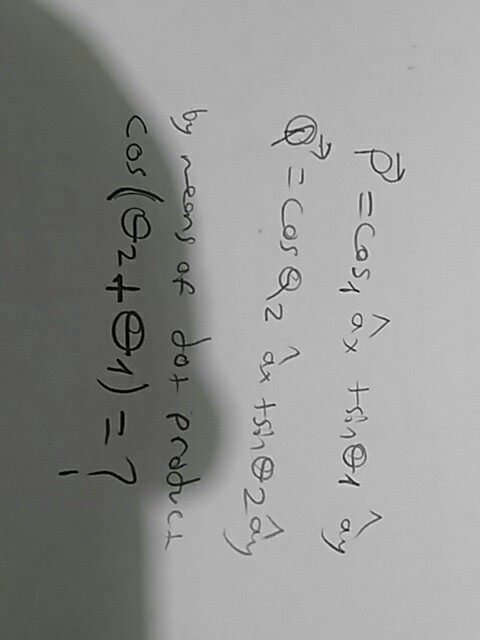 P⃗ = cos₁ âx + sinθ1 ây
Q⃗ = cosθ2 âx + sinθ2 ây
by means of dot product
cos(θ2 + θ1) = ?